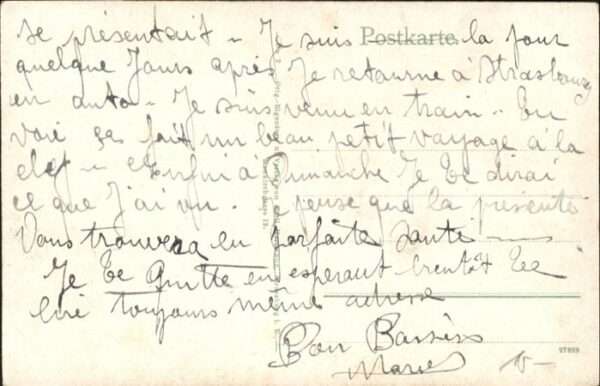 se présentait - Je suis Postkarte la pour
quelque Jours après Je retourne à Strasbourg
en auto - Je suis venu en train - Tu
voie ça fait un beau petit voyage à la
clef - Enfin à Dimanche Je te dirai
ce que J'ai vu. Je pense que la présente
Vous trouvera en parfaite santé
Je te quitte en espérant bientôt te
lire toujours même adresse
Bon Baisers
Marcel
27859